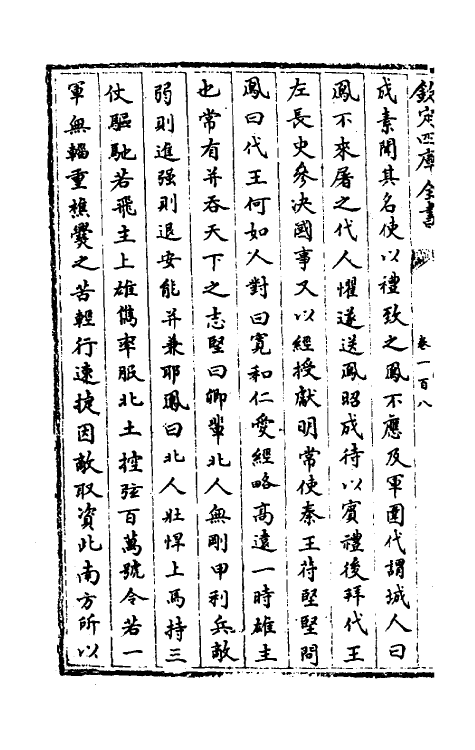 欽定四庫全書
卷一百八
成素聞其名使以禮致之鳳不應及軍圍代謂城人曰
鳳不來屠之代人懼遂送鳳昭成待以賓禮後拜代王
左長史參決國事又以經授獻明常使秦王苻堅堅問
鳳曰代王何如人對曰寛和仁愛經略高遠一時雄主
也常有并吞天下之志堅曰卿輩北人無剛甲利兵敵
弱則進强則退安能并兼耶鳳曰北人壯悍上馬持三
仗驅馳若飛主上雄儁率服北土控弦百萬號令若一
軍無輜重樵爨之苦輕行速捷因敵取資此南方所以